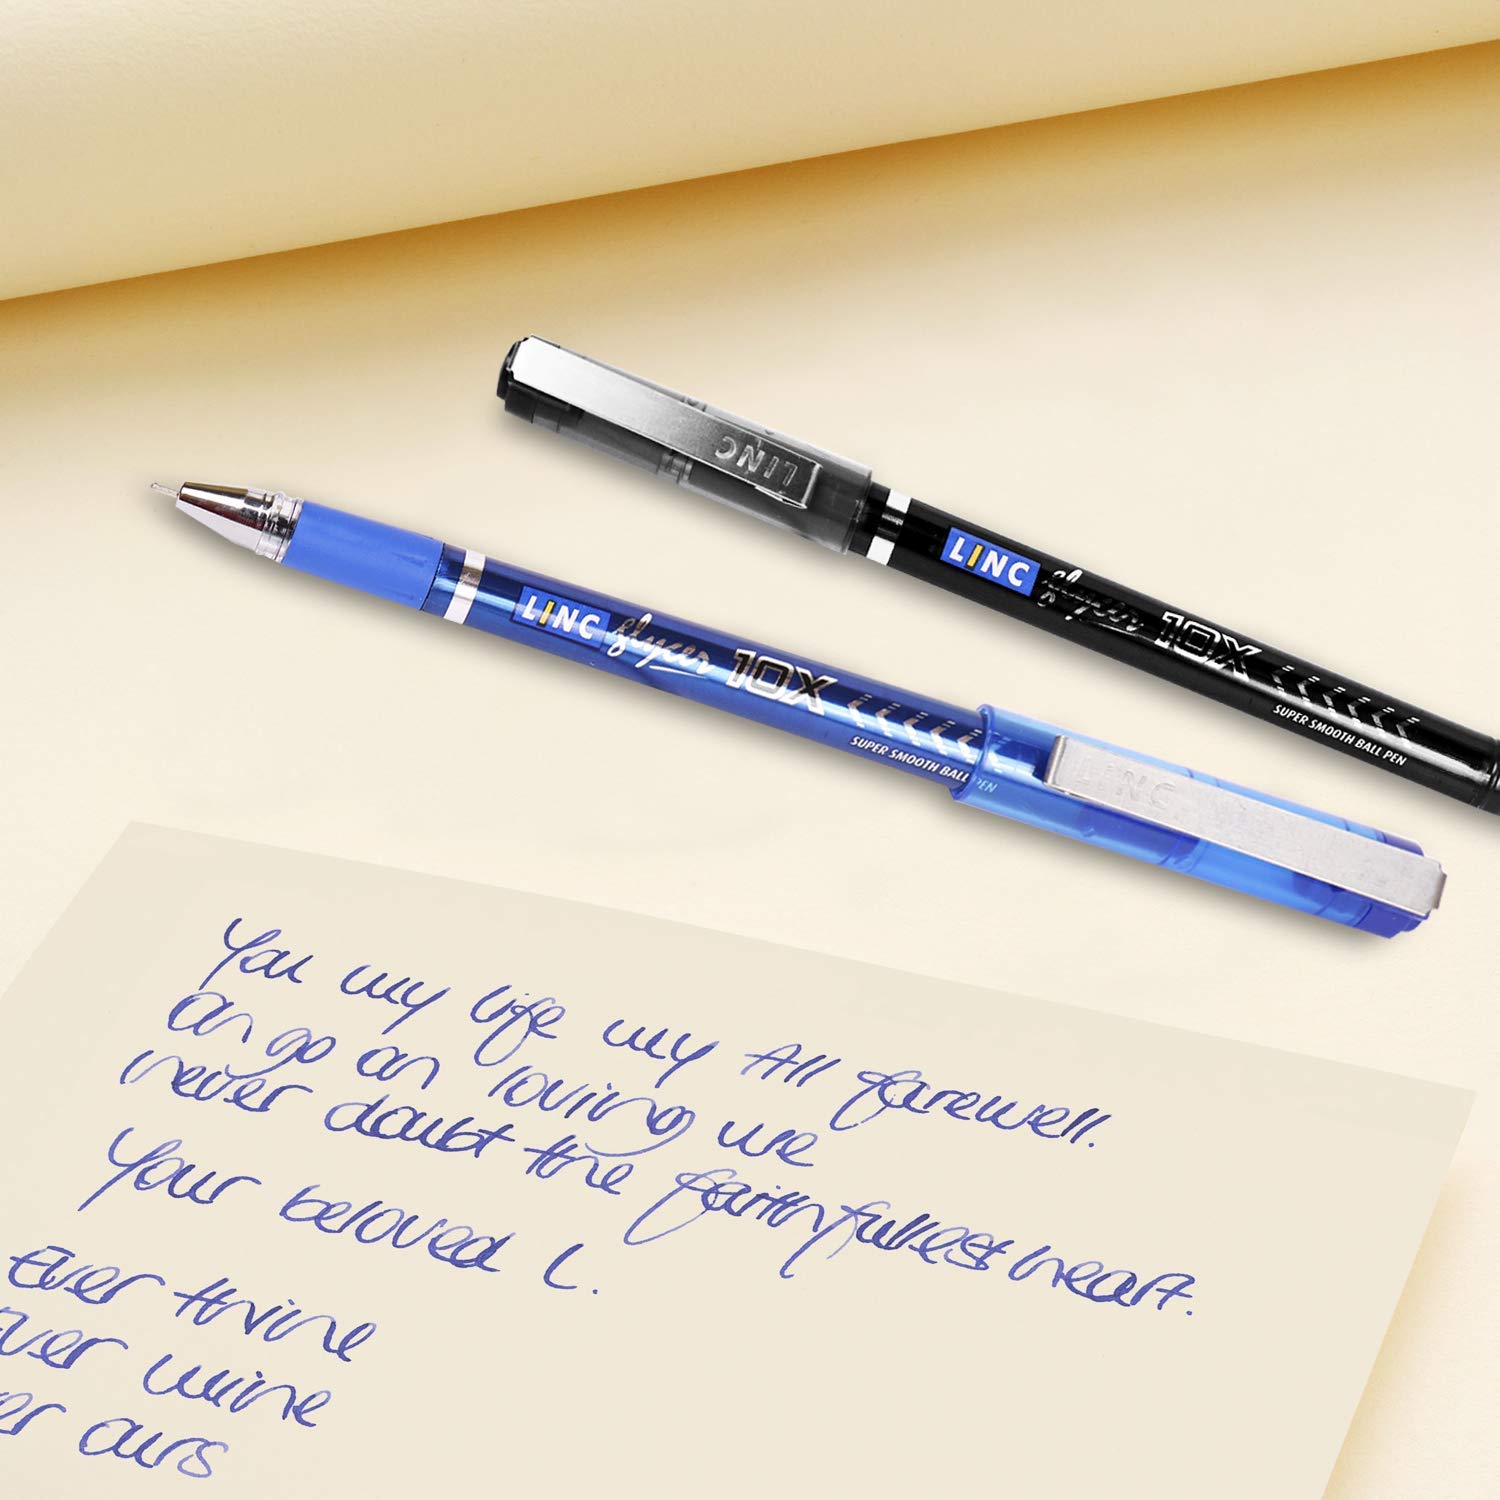 LINC
LINC flycer 10X
SUPER SMOOTH BALL PEN
LINC flycer 10X
SUPER SMOOTH BALL PEN
LINC
You my life my All farewell.
on go on loving me
never doubt the faithfullest heart.
Your beloved L.
Ever thine
Ever mine
er ours